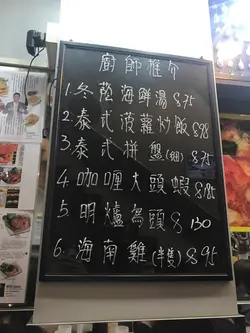 廚師推介
1.冬蔭海鮮湯 $75
2.泰式菠蘿炒飯 $78
3.泰式拼盤(細) $75
4.咖喱大頭蝦 $185
5.明爐烏頭 $130
6.海南雞(半隻) $95